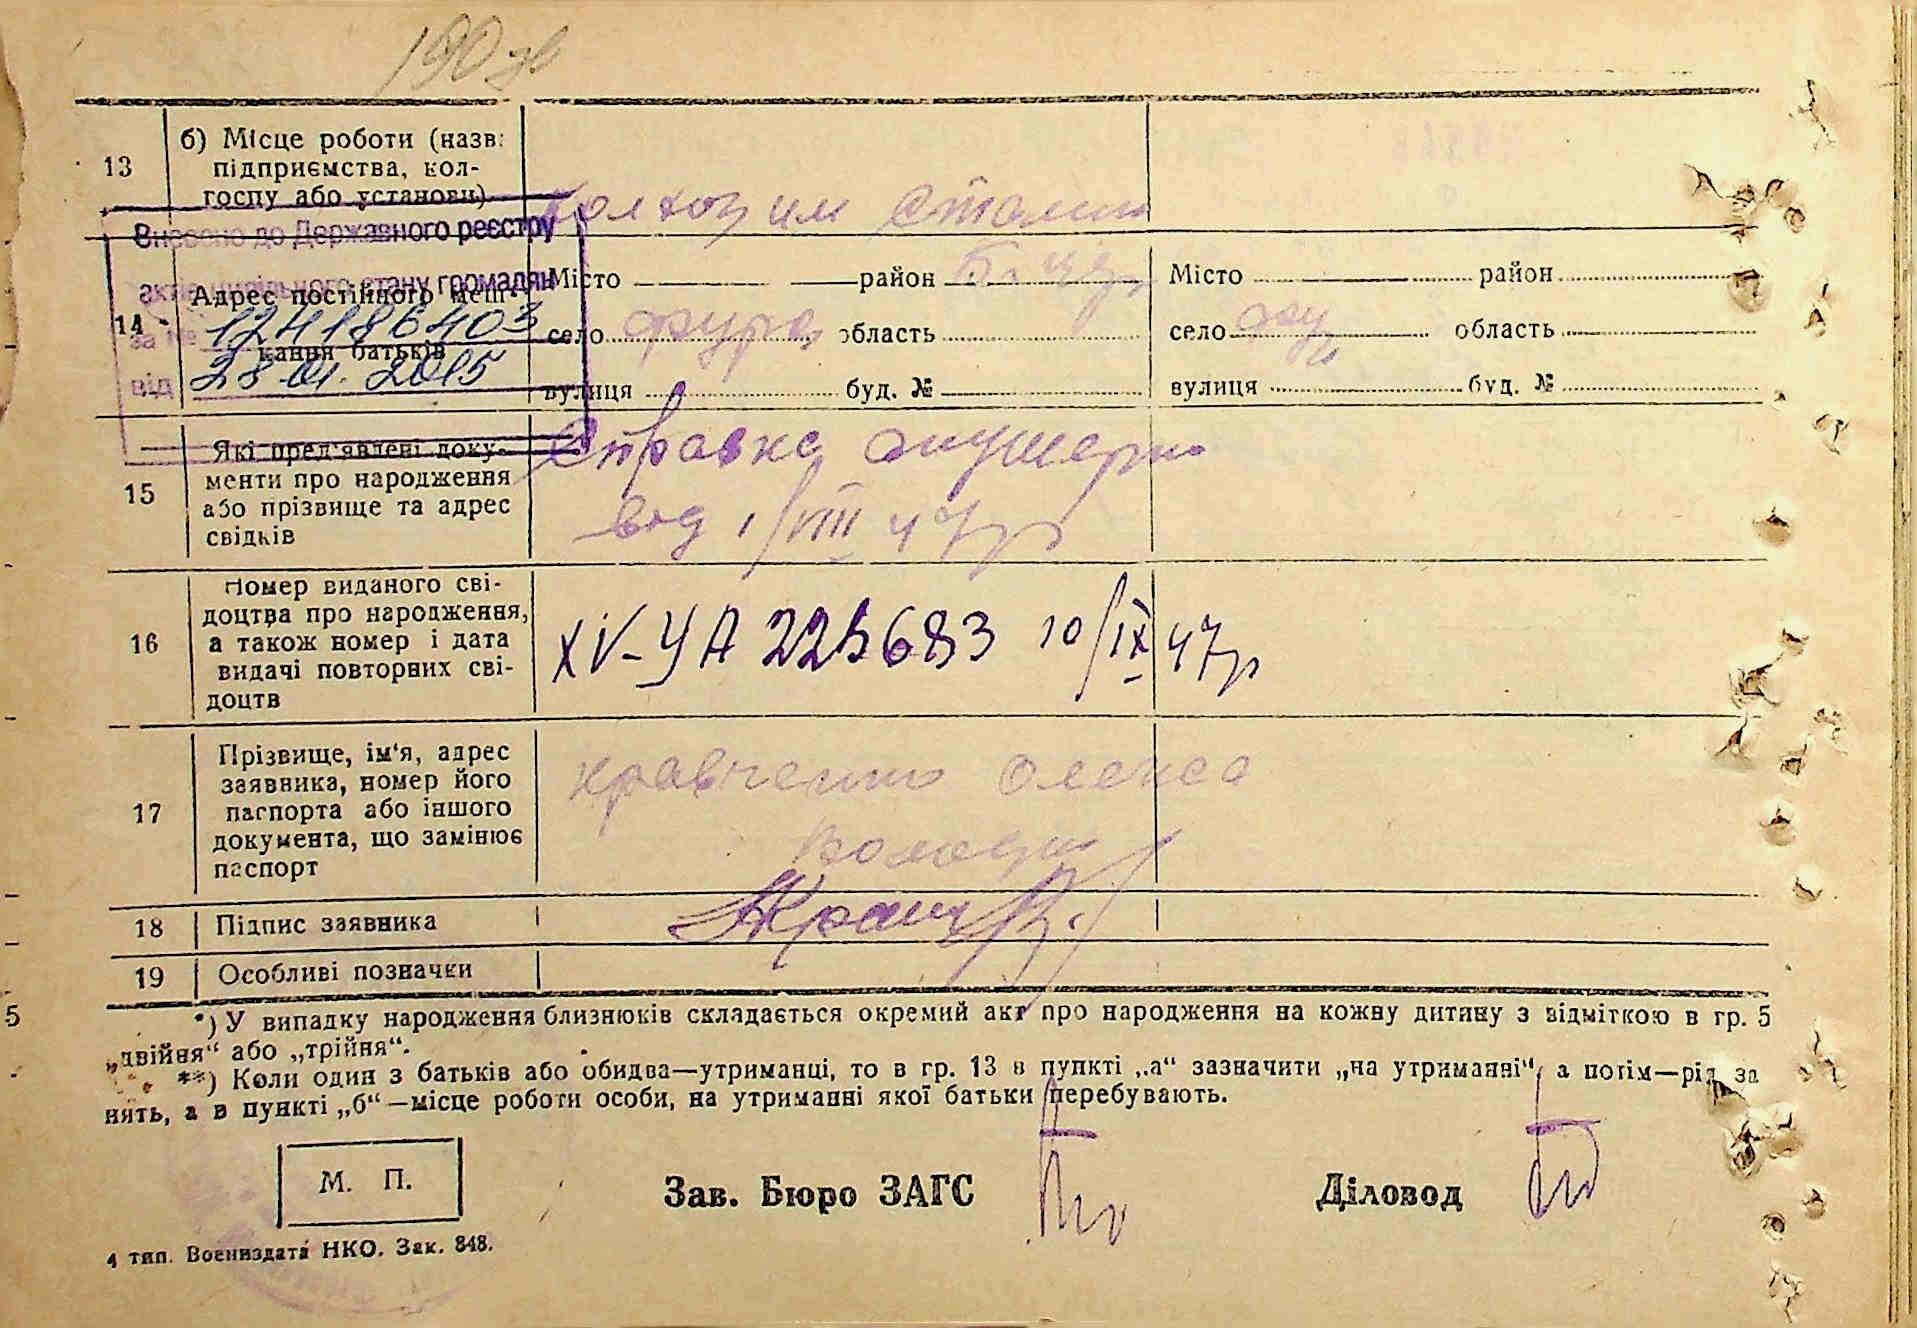 190
13
б) Місце роботи (назв:
підприємства, кол-
госпу або установи)
колхоз им Сталин
Внесено до Державного реєстру
актів цивільного стану громадян
за № 12418640З
від 28.01.2015
14
Адрес постійного меш-
кання батьків
Місто район
село область
вулиця буд. №
Місто район
село область
вулиця буд. №
15
Які пред'явлені доку-
менти про народження
або прізвище та адрес
свідків
Справка акушерки
від 1/VIII 47 р
16
Номер виданого сві-
доцтва про народження,
а також номер і дата
видачі повторних сві-
доцтв
XV-УА 225683 10/IX 47 р
17
Прізвище, ім'я, адрес
заявника, номер його
паспорта або іншого
документа, що замінює
паспорт
Кравченко Олекса
18 Підпис заявника
19 Особливі позначки
*) У випадку народження близнюків складається окремий акт про народження на кожну дитину з відміткою в гр. 5
„двійня“ або „трійня“.
**) Коли один з батьків або обидва—утриманці, то в гр. 13 в пункті „а“ зазначити „на утриманні“, а потім—рід за
нять, а в пункті „б“—місце роботи особи, на утриманні якої батьки перебувають.
5
М. П.
Зав. Бюро ЗАГС
Діловод
4 тип. Воениздата НКО. Зак. 848.